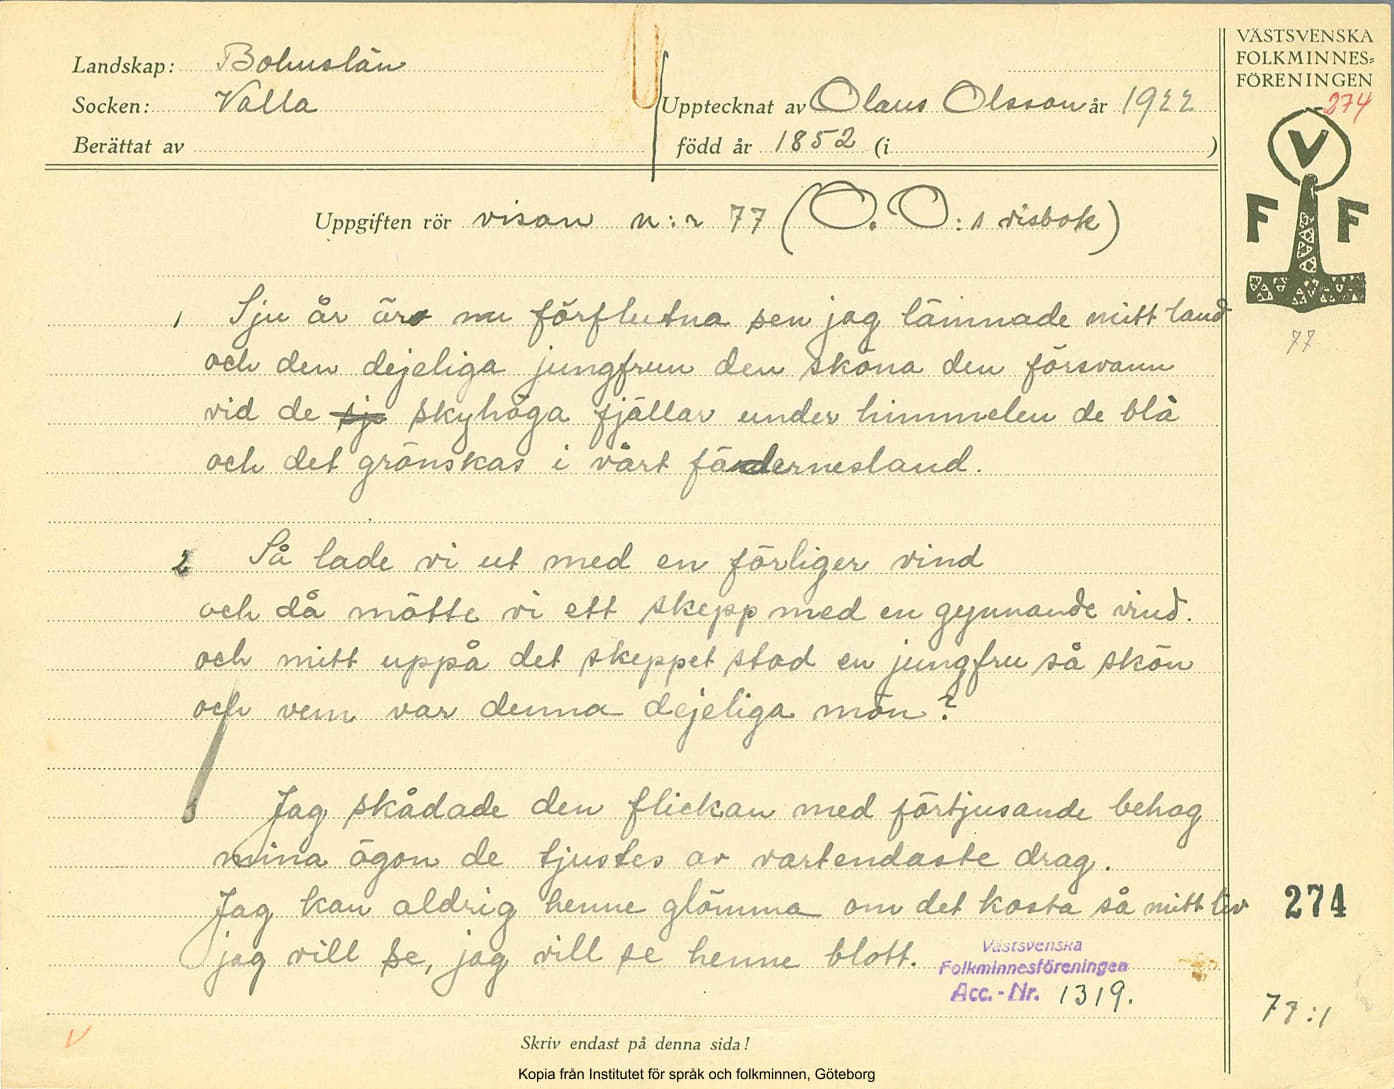 Landskap: Bohuslän
Socken: Valla
Berättat av
Upptecknat av Olaus Olsson år 1922
född år 1852 (i )
VÄSTSVENSKA
FOLKMINNES=
FÖRENINGEN
274
V
F F
77
Uppgiften rör visan n:r 77 (O. O:s visbok)
1 Sju år äro nu förflutna sen jag lämnade mitt land
och den dejeliga jungfrun den sköna den försvann
vid de sje skyhöga fjällar under himmelen de blå
och det grönskas i vårt fädernesland.
2 Så lade vi ut med en förliger vind
och då mötte vi ett skepp med en gynnande vind.
och mitt uppå det skeppet stod en jungfru så skön
och vem var denna dejeliga mön?
3 Jag skådade den flickan med förtjusande behag
mina ögon de tjustes av vartendaste drag.
Jag kan aldrig henne glömma om det kosta så mitt liv
jag vill se, jag vill se henne blott.
274
Västsvenska
Folkminnesföreningen
Acc.-Nr. 1319.
77:1
V
Skriv endast på denna sida!
Kopia från Institutet för språk och folkminnen, Göteborg